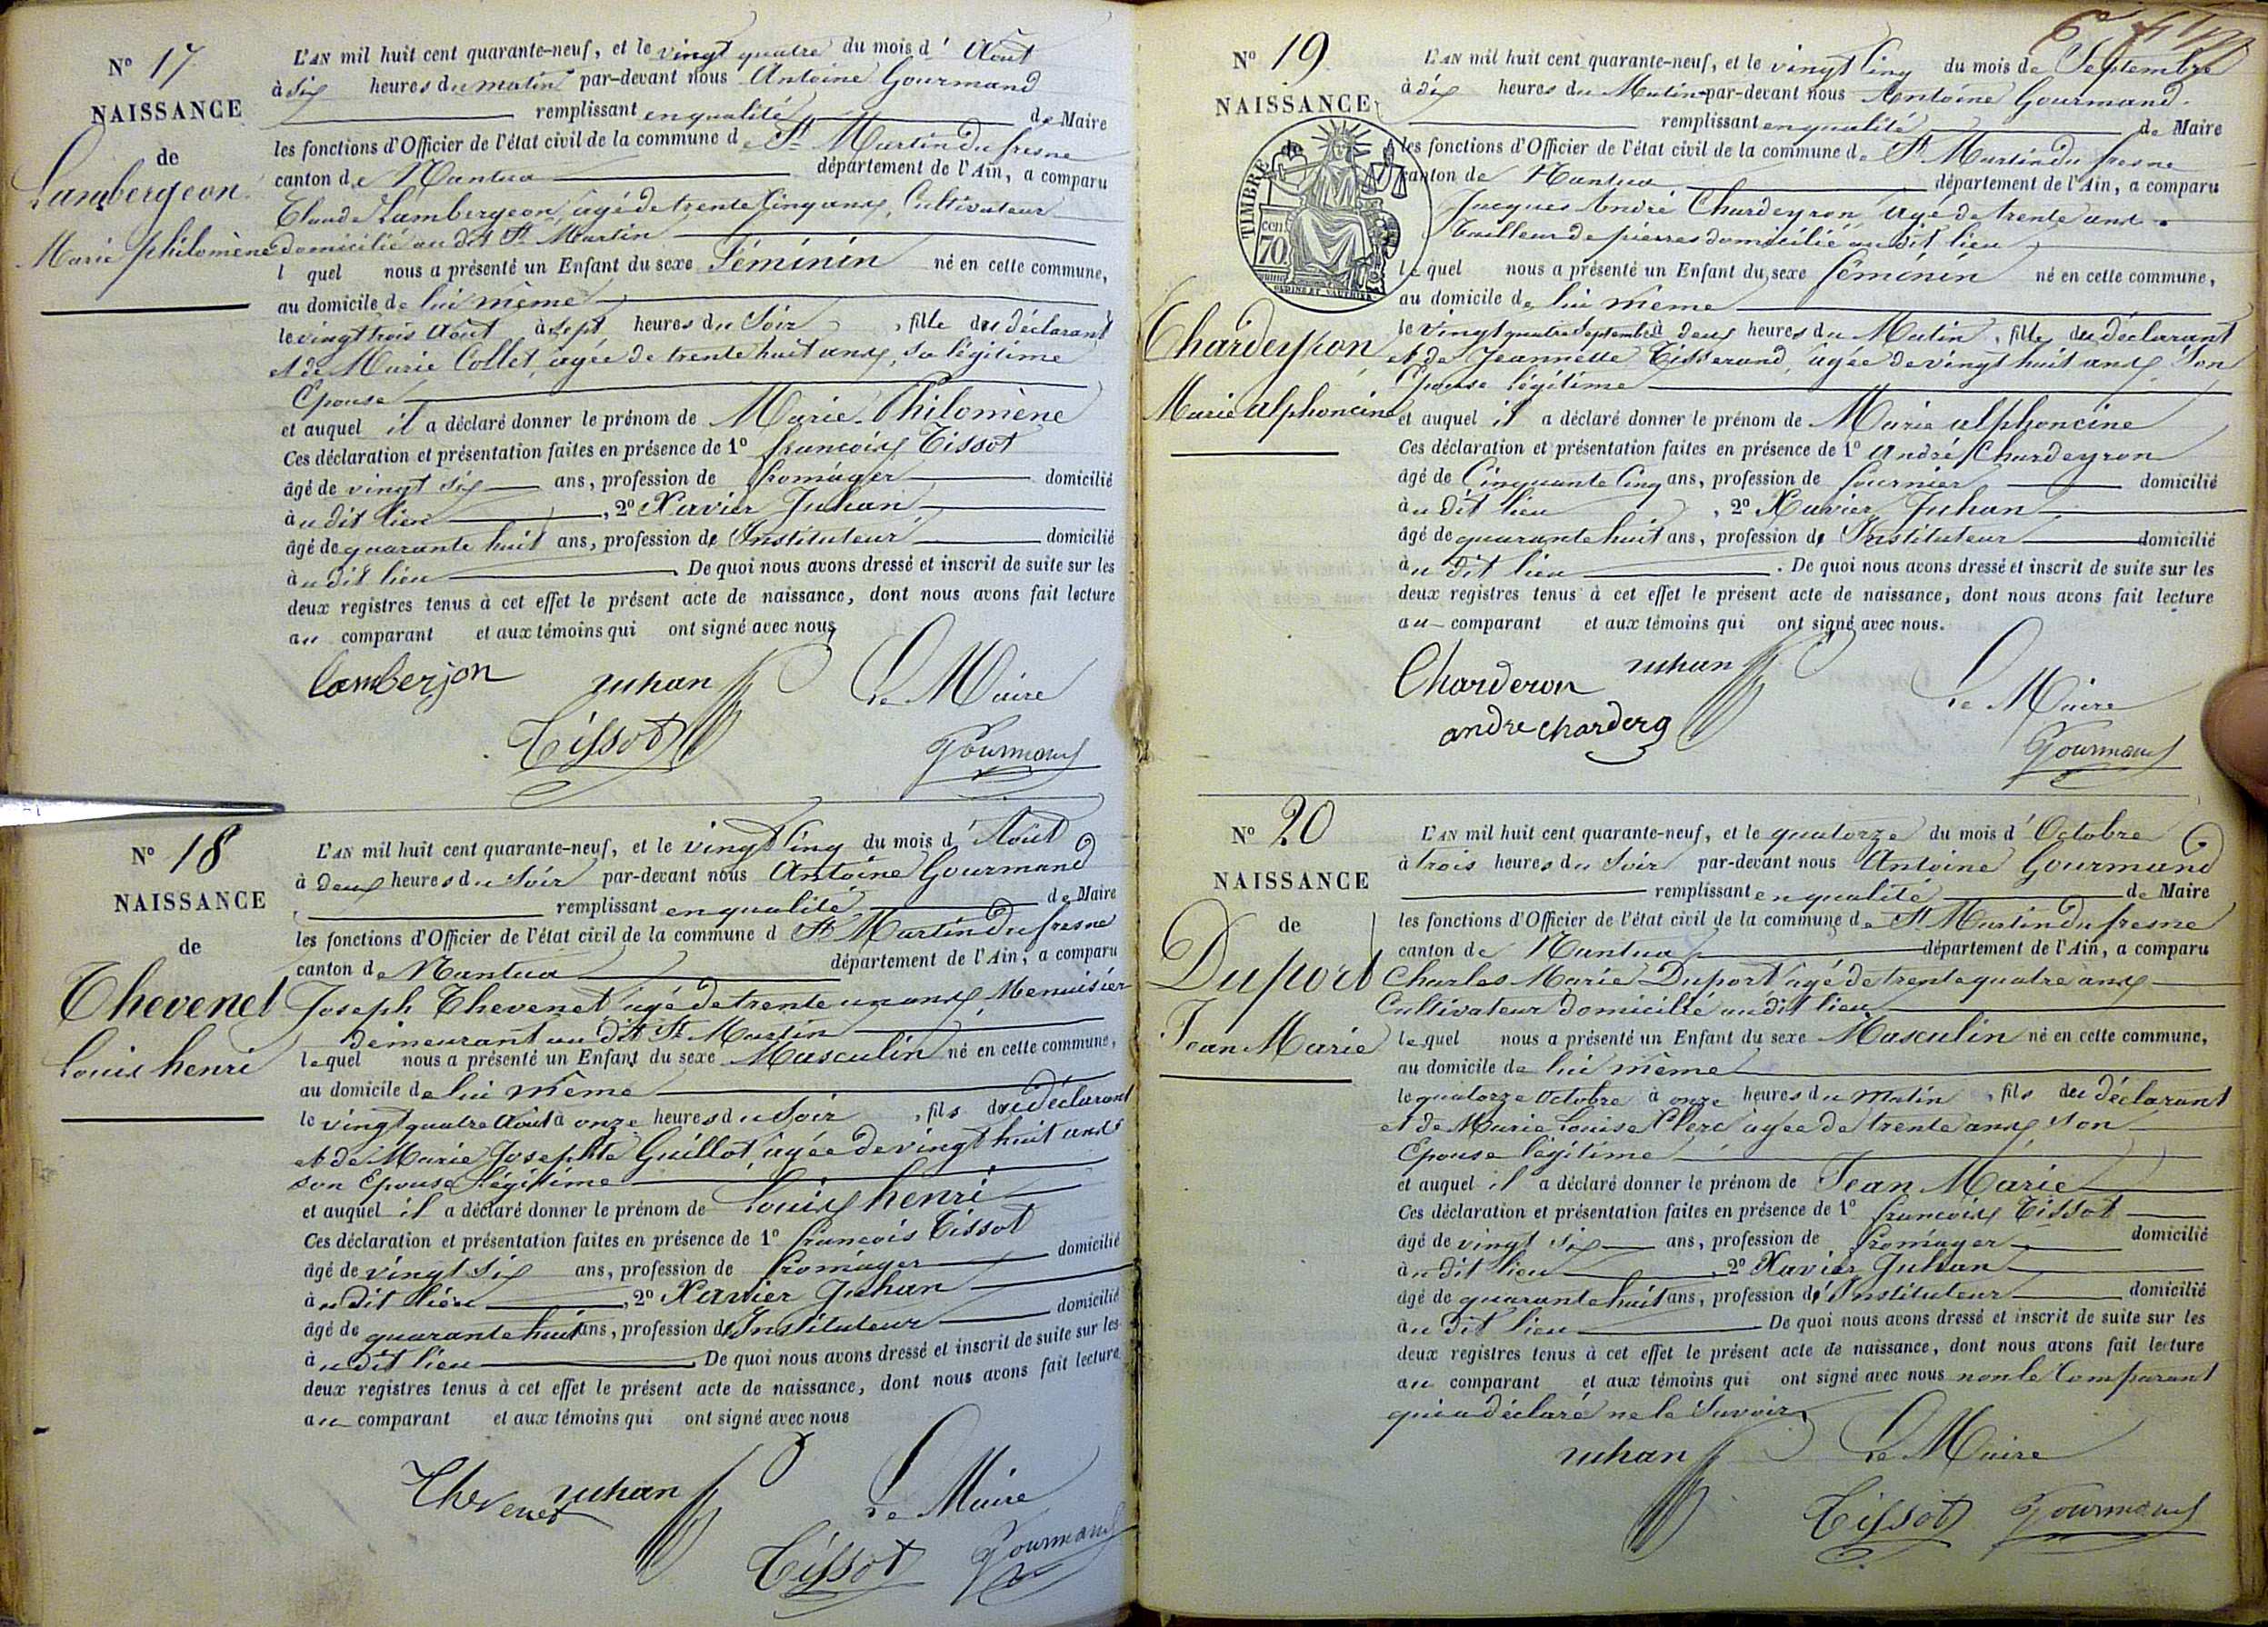 N° 17
NAISSANCE
de
Lambergeon
Marie philomène
L'AN mil huit cent quarante-neuf, et le vingt quatre du mois d' Août
à six heures du matin par-devant nous Antoine Gourmand
remplissant en qualité de Maire
les fonctions d'Officier de l'état civil de la commune de St Martin du fresne
canton de Nantua département de l'Ain, a comparu
Claude Lambergeon, agé de trente Cinq ans, Cultivateur
domicilié au dit St Martin
l quel nous a présenté un Enfant du sexe Féminin né en cette commune,
au domicile de lui même
le vingt trois Août à sept heures du Soir, fille du déclarant
et de Marie Collet, agée de trente huit ans, sa légitime
Epouse
et auquel il a déclaré donner le prénom de Marie Philomène
Ces déclaration et présentation faites en présence de 1° francois Tissot
âgé de vingt six ans, profession de fromager domicilié
à u dit lieu, 2° Xavier Juhan
âgé de quarante huit ans, profession de Instituteur domicilié
à u dit lieu. De quoi nous avons dressé et inscrit de suite sur les
deux registres tenus à cet effet le présent acte de naissance, dont nous avons fait lecture
au comparant et aux témoins qui ont signé avec nous
Lamberjon Juhan Le Maire
Tissot Gourmand
N° 18
NAISSANCE
de
Thevenet
Louis henri
L'AN mil huit cent quarante-neuf, et le vingt Cinq du mois d' Août
à deux heures du Soir par-devant nous Antoine Gourmand
remplissant en qualité de Maire
les fonctions d'Officier de l'état civil de la commune d St Martin du fresne
canton de Nantua département de l'Ain, a comparu
Joseph Thevenet agé de trente un ans, Menuisier
demeurant au dit St Martin
lequel nous a présenté un Enfant du sexe Masculin né en cette commune,
au domicile de lui même
le vingt quatre Août à onze heures du Soir, fils du déclarant
et de Marie Josephte Guillot, agée de vingt huit ans
son Epouse légitime
et auquel il a déclaré donner le prénom de Louis henri
Ces déclaration et présentation faites en présence de 1° francois Tissot
âgé de vingt six ans, profession de fromager domicilié
à u dit lieu, 2° Xavier Juhan
âgé de quarante huit ans, profession de Instituteur domicilié
à u dit lieu. De quoi nous avons dressé et inscrit de suite sur les
deux registres tenus à cet effet le présent acte de naissance, dont nous avons fait lecture
au comparant et aux témoins qui ont signé avec nous
Thevenet Juhan Le Maire
Tissot Gourmand
N° 19
NAISSANCE
de
TIMBRE
70
Chardeyron
Marie alphoncine
L'AN mil huit cent quarante-neuf, et le vingt Cinq du mois de Septembre
à dix heures du Matin par-devant nous Antoine Gourmand.
remplissant en qualité de Maire
les fonctions d'Officier de l'état civil de la commune de St Martin du fresne
canton de Nantua département de l'Ain, a comparu
Jacques André Chardeyron agé de trente ans
tailleur de pierres domicilié au dit lieu
le quel nous a présenté un Enfant du sexe féminin né en cette commune,
au domicile de lui même
le vingt quatre Septembre à deux heures du Matin, fille du déclarant
et de Jeannette Tisserand, agée de vingt huit ans, Son
Epouse légitime
et auquel il a déclaré donner le prénom de Marie alphoncine
Ces déclaration et présentation faites en présence de 1° André Chardeyron
âgé de Cinquante Cinq ans, profession de fournier domicilié
à u dit lieu, 2° Xavier Juhan
âgé de quarante huit ans, profession de Instituteur domicilié
à u dit lieu. De quoi nous avons dressé et inscrit de suite sur les
deux registres tenus à cet effet le présent acte de naissance, dont nous avons fait lecture
au comparant et aux témoins qui ont signé avec nous.
Charderon Juhan Le Maire
andre charderg Gourmand
N° 20
NAISSANCE
de
Duport
Jean Marie
L'AN mil huit cent quarante-neuf, et le quatorze du mois d' Octobre
à trois heures du Soir par-devant nous Antoine Gourmand
remplissant en qualité de Maire
les fonctions d'Officier de l'état civil de la commune de St Martin du fresne
canton de Nantua département de l'Ain, a comparu
Charles Marie Duport agé de trente quatre ans
Cultivateur domicilié au dit lieu
le quel nous a présenté un Enfant du sexe Masculin né en cette commune,
au domicile de lui même
le quatorze Octobre à onze heures du matin, fils du déclarant
et de Marie Louise Clerc agée de trente ans, son
Epouse légitime
et auquel il a déclaré donner le prénom de Jean Marie
Ces déclaration et présentation faites en présence de 1° francois Tissot
âgé de vingt six ans, profession de fromager domicilié
à u dit lieu, 2° Xavier Juhan
âgé de quarante huit ans, profession de Instituteur domicilié
à u dit lieu De quoi nous avons dressé et inscrit de suite sur les
deux registres tenus à cet effet le présent acte de naissance, dont nous avons fait lecture
au comparant et aux témoins qui ont signé avec nous non le Comparant
qui a déclaré ne le Savoir.
Juhan Le Maire
Tissot Gourmand